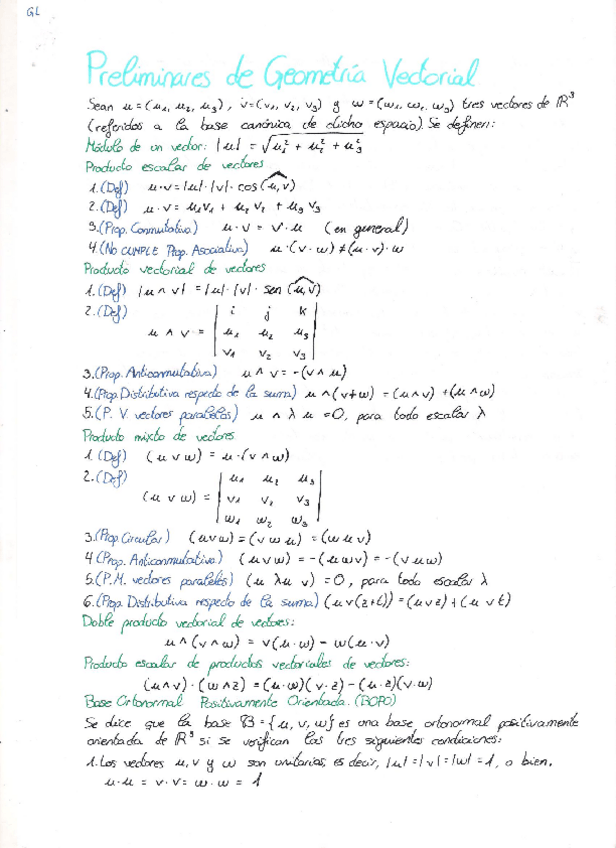 GL
Preliminares de Geometría Vectorial
Sean u=(u₁, u₂, u₃), v=(v₁, v₂, v₃) y w=(w₁, w₂, w₃) tres vectores de ℝ³
(referidos a la base canónica de dicho espacio). Se definen:
Módulo de un vector: |u| = √(u₁² + u₂² + u₃²)
Producto escalar de vectores
1.(Def) u·v=|u|·|v|·cos(u,v)
2.(Def) u·v = u₁v₁ + u₂v₂ + u₃v₃
3.(Prop. Conmutativa) u·v = v·u (en general)
4.(No CUMPLE Prop. Asociativa) u·(v·w)≠(u·v)·w
Producto vectorial de vectores
1.(Def) |u∧v| = |u|·|v|·sen(u,v)
2.(Def) | i j k |
u∧v = | u₁ u₂ u₃ |
| v₁ v₂ v₃ |
3.(Prop. Anticonmutativa) u∧v = -(v∧u)
4.(Prop. Distributiva respecto de la suma) u∧(v+w) = (u∧v)+(u∧w)
5.(P. V. vectores paralelos) u∧λu = 0, para todo escalar λ
Producto mixto de vectores
1.(Def) (u v w) = u·(v∧w)
2.(Def) | u₁ u₂ u₃ |
(u v w) = | v₁ v₂ v₃ |
| w₁ w₂ w₃ |
3.(Prop. Circular) (u v w) = (v w u) = (w u v)
4.(Prop. Anticonmutativa) (u v w) = -(u w v) = -(v u w)
5.(P.M. vectores paralelos) (u λu v) = 0, para todo escalar λ
6.(Prop. Distributiva respecto de la suma) (u v (z+t)) = (u v z)+(u v t)
Doble producto vectorial de vectores:
u∧(v∧w) = v(u·w) - w(u·v)
Producto escalar de productos vectoriales de vectores:
(u∧v)·(w∧z) = (u·w)(v·z)-(u·z)(v·w)
Base Ortonormal Positivamente Orientada. (BOPO)
Se dice que la base B={u,v,w} es una base ortonormal positivamente
orientada de ℝ³ si se verifican las tres siguientes condiciones:
1. Los vectores u,v y w son unitarios, es decir, |u|=|v|=|w|=1, o bien,
u·u = v·v = w·w = 1